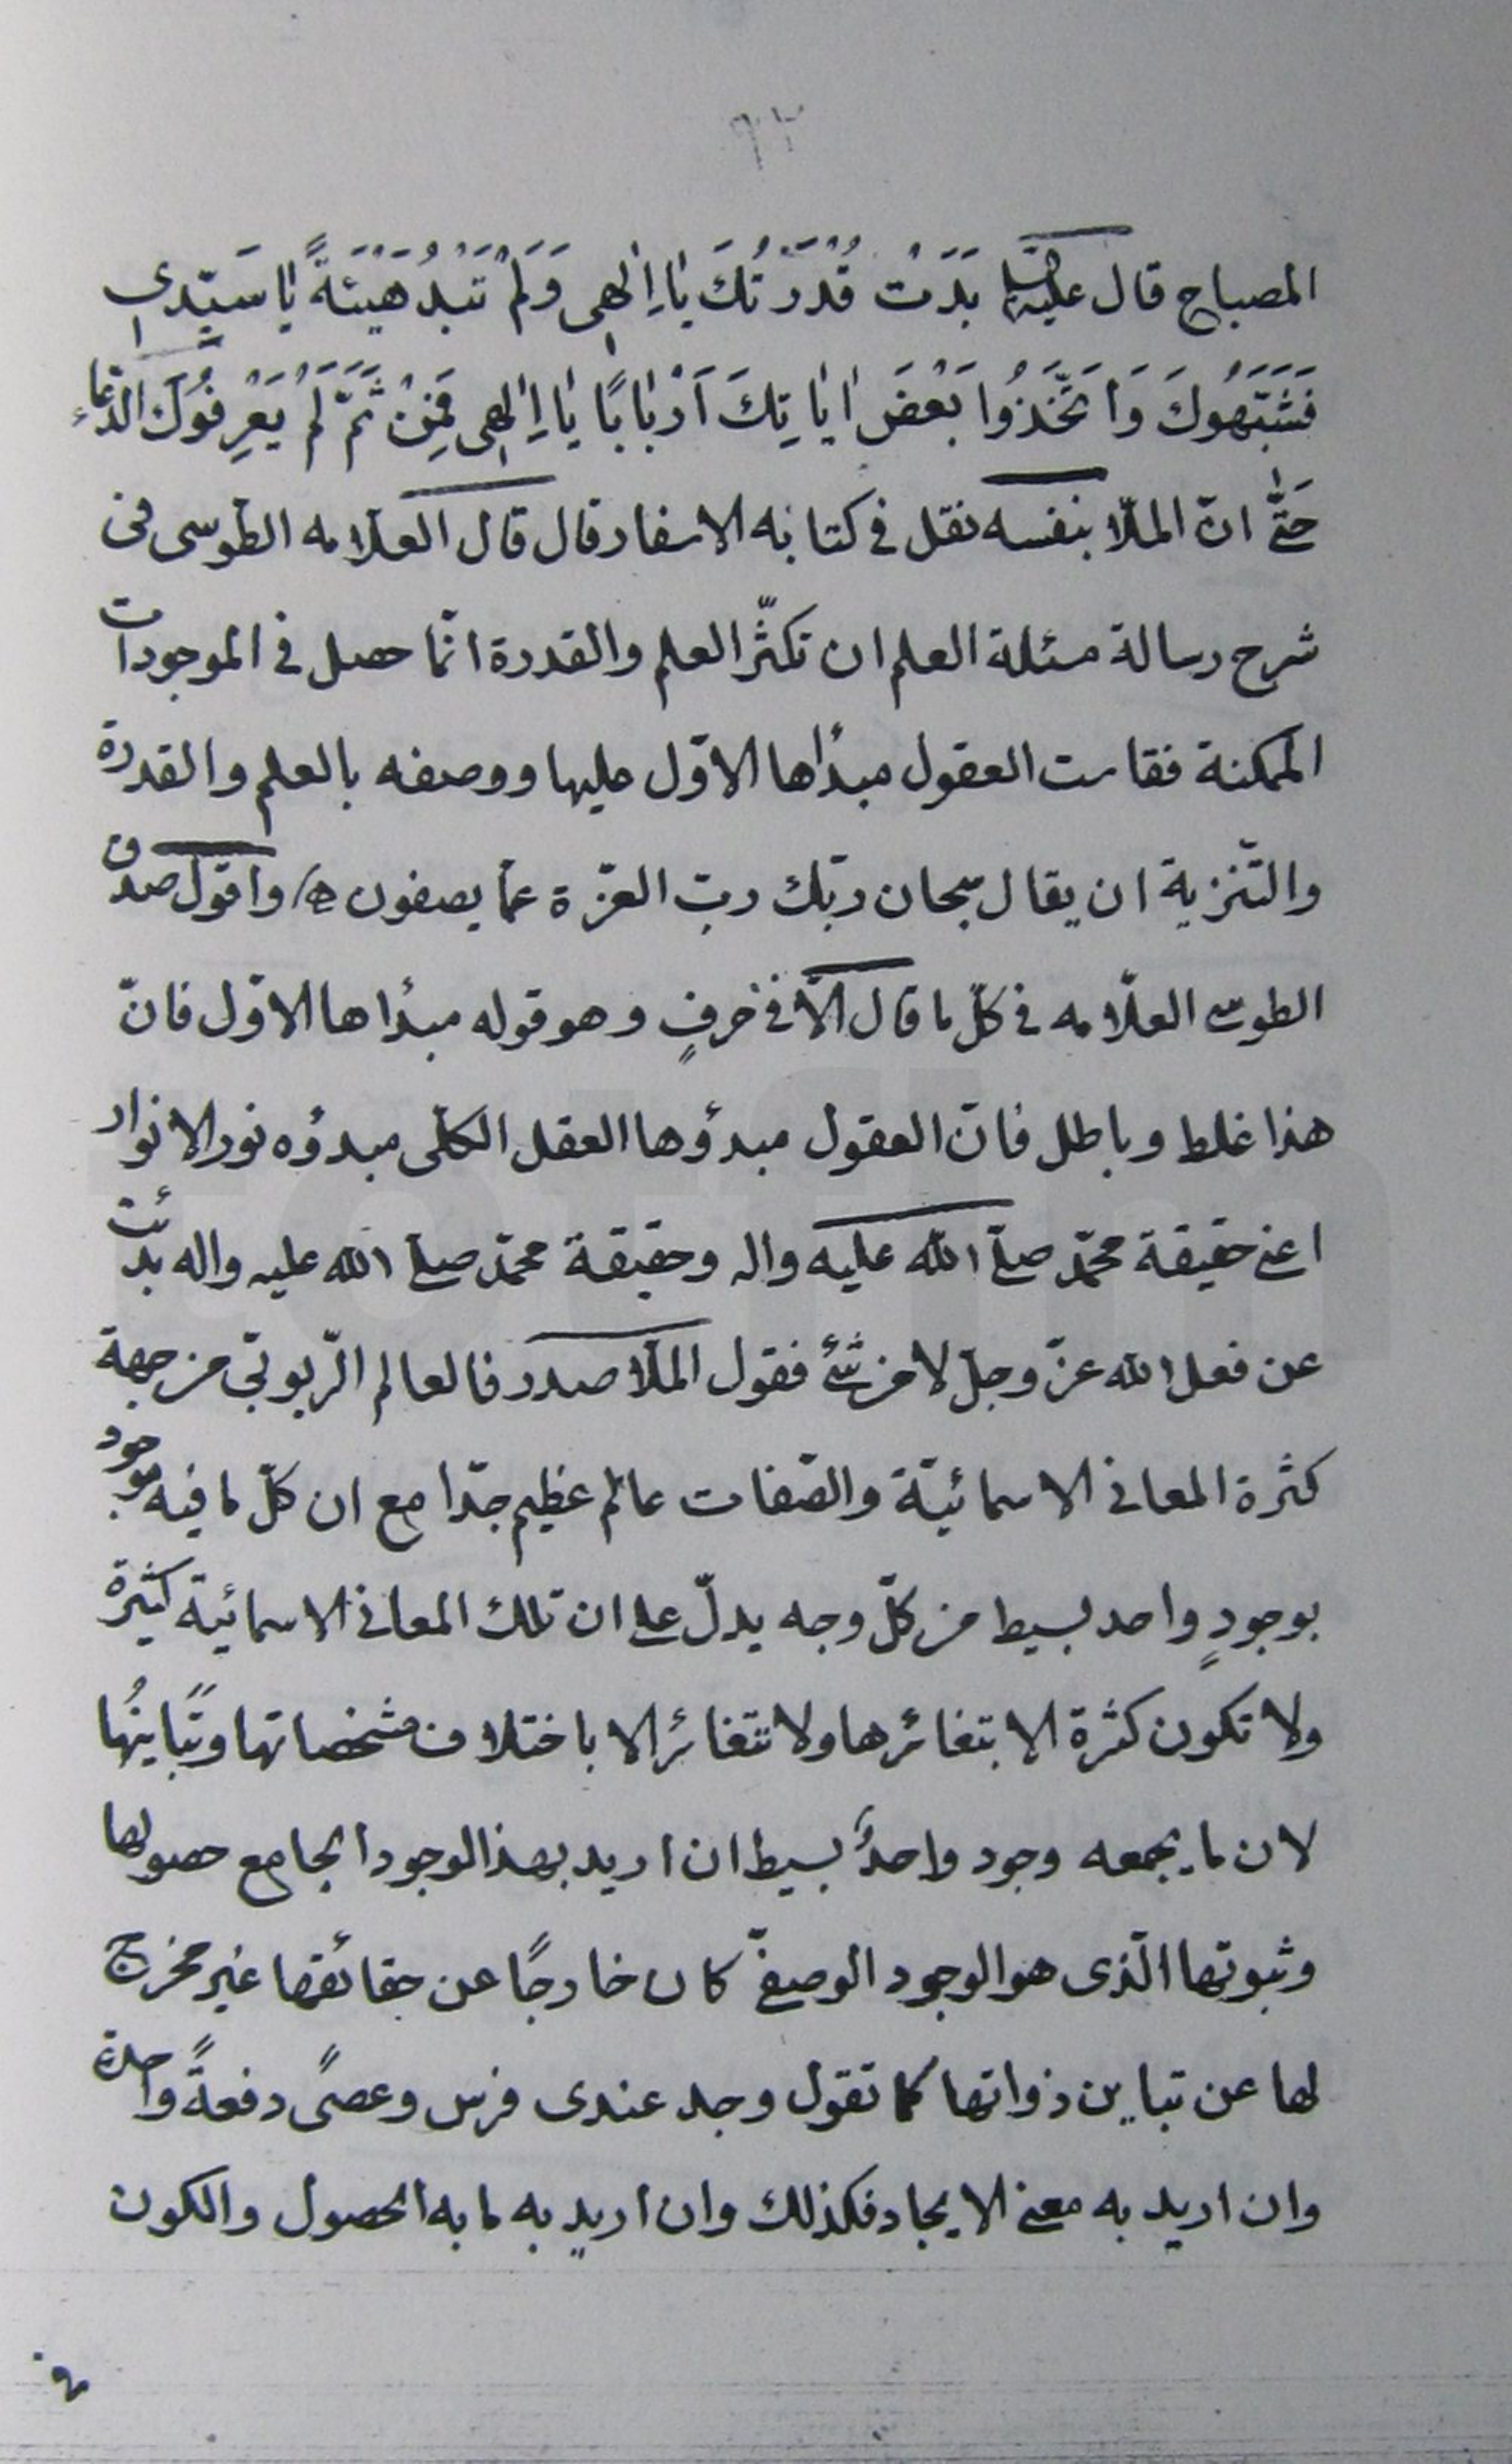 ٩٢
المصباح قال عليه السلام بَدَتْ قُدْرَتُكَ يٰا اِلٰهِى وَلَمْ تَبْدُ هَيْئَةً يٰا سَيّدى
فَشَبَّهُوكَ وَاتَّخَذُوا بَعْضَ ايٰاتِكَ اَرْبٰابًا يٰا اِلٰهِى فَمِنْ ثَمَّ لَمْ يَعْرِفُوكَ الدّعاء
حَتّٰى انّ الملّا بنفسه نقل فى كتابه الاسفار قال قال العلامه الطوسى فى
شرح رسالة مسئلة العلم ان تكثّر العلم والقدرة انّما حصل فى الموجودات
الممكنة فقاست العقول مبدأها الاوّل عليها ووصفه بالعلم والقدرة
والتّنزية ان يقال سبحان ربّك ربّ العزّة عمّا يصفون ه/ واقول صدق
الطوسى العلّامه فى كلّ ما قال الّا فى حرفٍ وهو قوله مبدأها الاوّل فانّ
هذا غلط وباطل فانّ العقول مبدؤها العقل الكلّى مبدؤه نور الانوار
اعنى حقيقة محمّد صلّى الله عليه واله وحقيقة محمّد صلى الله عليه واله بدئت
عن فعل الله عزّ وجلّ لا من شئ فقول الملّا صدر فالعالم الرّبوبّى من جهة
كثرة المعانى الاسمائيّة والصّفات عالم عظيم جدّا مع ان كلّ ما فيه موجود
بوجودٍ واحد بسيط من كلّ وجه يدلّ على ان تلك المعانى الاسمائية كثيرة
ولا تكون كثرة الا بتغائرها ولا تتغائر الا باختلاف مشخصاتها وتَبٰاينُها
لان ما يجمعه وجود واحدٌ بسيط ان اريد بهذا الوجود الجامع حصولها
وثبوتها الّذى هو الوجود الوصفىّ كان خارجًا عن حقائقها غير مخرج
لها عن تباين ذواتها كما تقول وجد عندى فرس وعصًى دفعةً واحدة
وان اريد به معنى الايجاد فكذلك وان اريد به ما به الحصول والكون